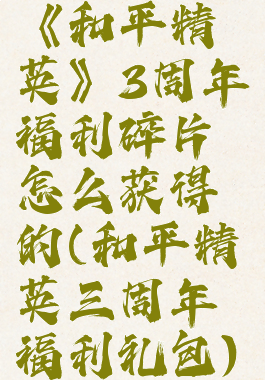 《和平精
英》3周年
福利碎片
怎么获得
的(和平精
英三周年
福利礼包)